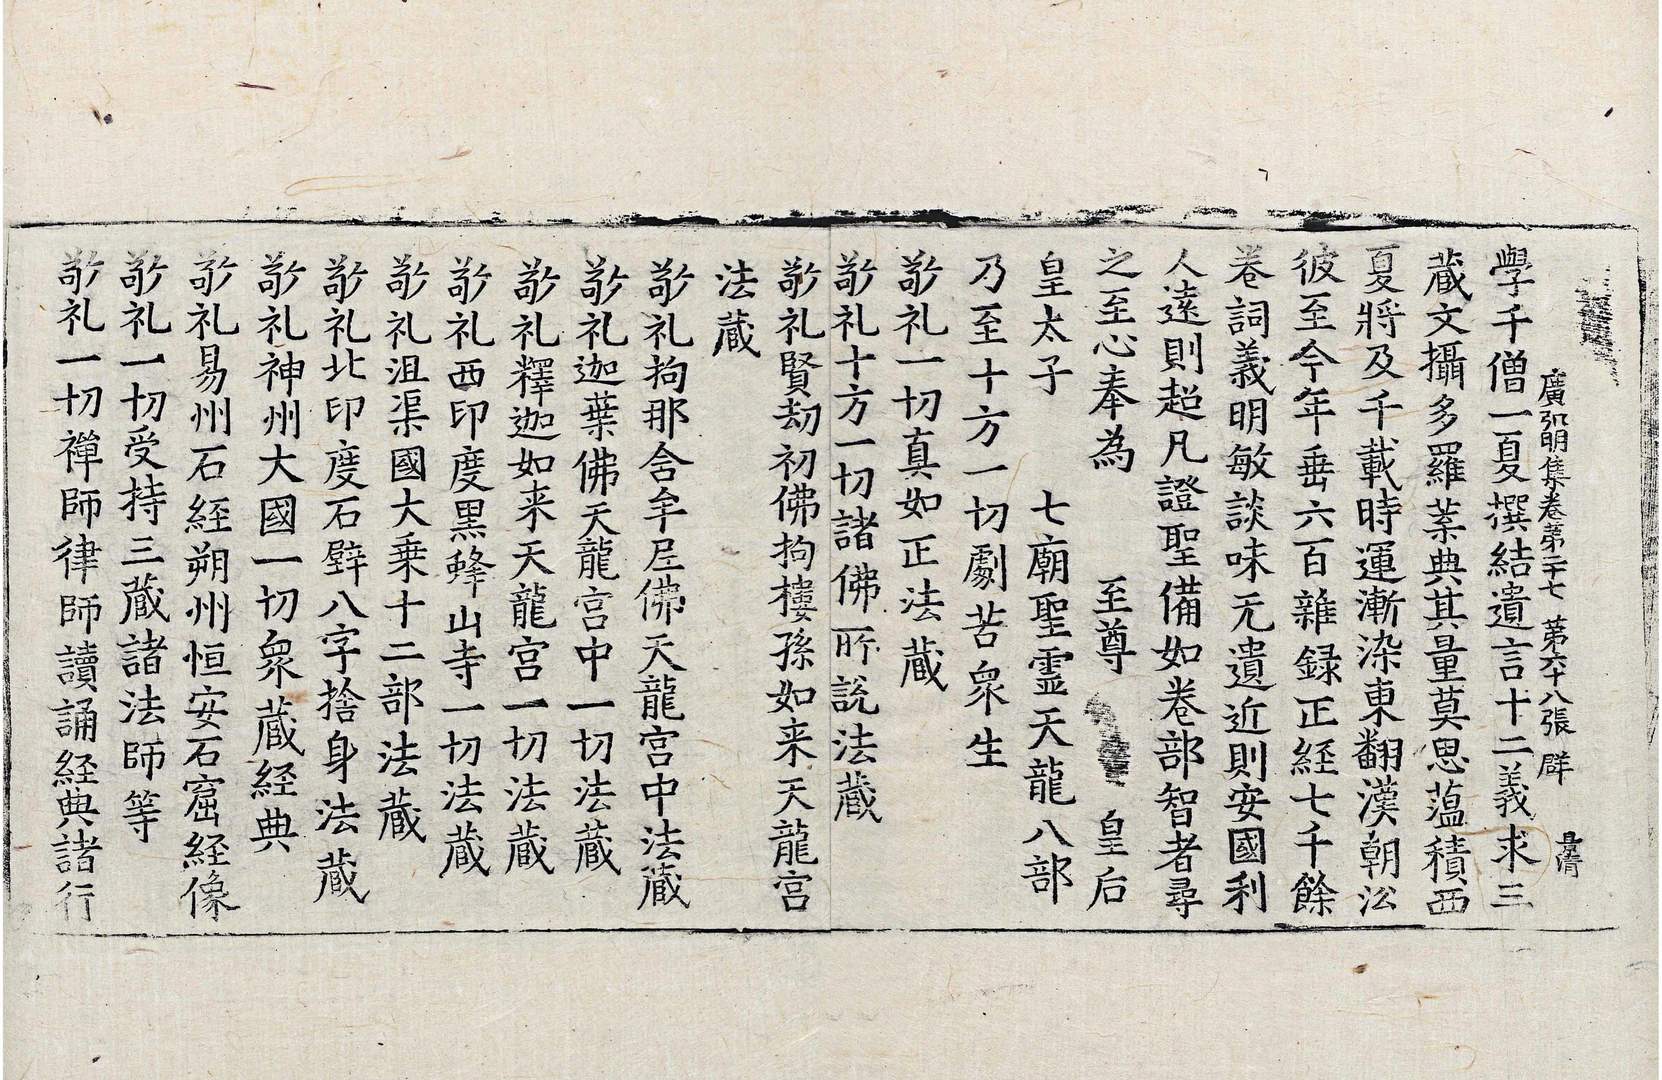 廣弘明集卷第二十七 第六十八張 群
學千僧一夏撰結遺言十二義求三
藏文攝多羅葉典其量莫思薀積西
夏將及千載時運漸染東翻漢朝訟
彼至今年垂六百雜録正経七千餘
卷詞義明敏談味无遺近則安國利
人遠則超凡證聖備如卷部智者尋
之至心奉為 至尊 皇后
皇太子 七廟聖霊天龍八部
乃至十方一切劇苦衆生
敬礼一切真如正法藏
敬礼十方一切諸佛所說法藏
敬礼賢劫初佛拘樓孫如来天龍宮
法藏
敬礼拘那含牟尼佛天龍宮中法藏
敬礼迦葉佛天龍宮中一切法藏
敬礼釋迦如来天龍宮一切法藏
敬礼西印度黒蜂山寺一切法藏
敬礼沮渠國大乗十二部法藏
敬礼北印度石壁八字捨身法藏
敬礼神州大國一切衆藏経典
敬礼易州石経朔州恒安石窟経像
敬礼一切受持三藏諸法師等
敬礼一切禪師律師讀誦経典諸行